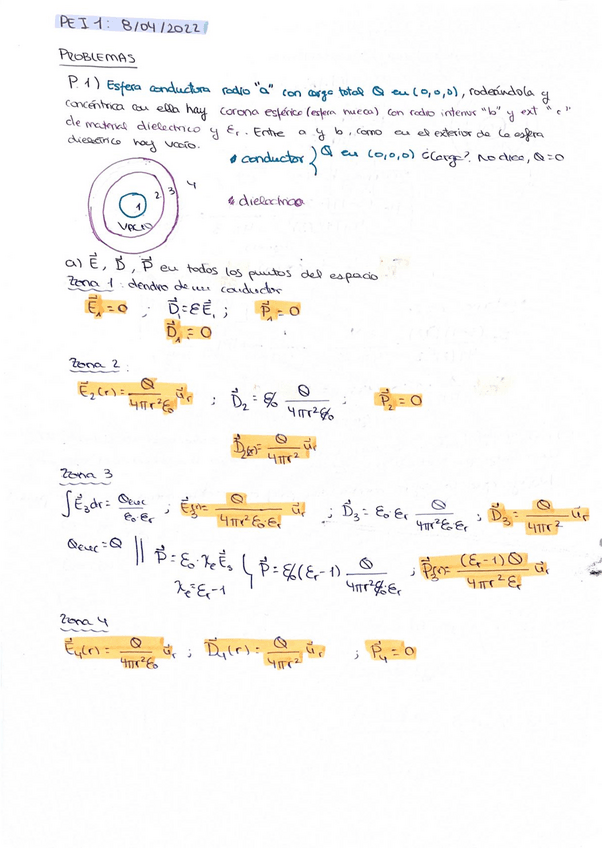 PEI 1: 8/04/2022
PROBLEMAS
P.1) Esfera conductora radio "a" con carga total Q en (0,0,0), rodeándola y
concéntrica con ella hay corona esférica (esfera hueca) con radio interior "b" y ext "c"
de material dieléctrico y εr. Entre a y b, como en el exterior de la esfera
dieléctrica hay vacío.
• conductor } Q en (0,0,0) ¿Carga? No dice, Q=0
• dieléctrico
1 2 3 4
VACÍO
a) E⃗, D⃗, P⃗ en todos los puntos del espacio
Zona 1: dentro de un conductor
E⃗₁=0 ; D⃗₁=εE⃗₁ ; P⃗₁=0
D⃗₁=0
Zona 2:
E⃗₂(r)= Q/(4πr²ε₀) u⃗r ; D⃗₂= ε₀ Q/(4πr²ε₀) ; P⃗₂=0
D⃗₂(r)= Q/(4πr²) u⃗r
Zona 3
∫E⃗₃dr= Qenc/(ε₀·εr) ; E⃗₃(r)= Q/(4πr²ε₀·εr) u⃗r ; D⃗₃= ε₀·εr Q/(4πr²ε₀εr) ; D⃗₃= Q/(4πr²) u⃗r
Qenc=Q || P⃗=ε₀·χe E⃗₃ { P⃗=ε₀(εr-1) Q/(4πr²ε₀·εr) ; P⃗₃(r)= (εr-1)Q/(4πr²εr) u⃗r
χe=εr-1
Zona 4
E⃗₄(r)= Q/(4πr²ε₀) u⃗r ; D⃗₄(r)= Q/(4πr²) u⃗r ; P⃗₄=0